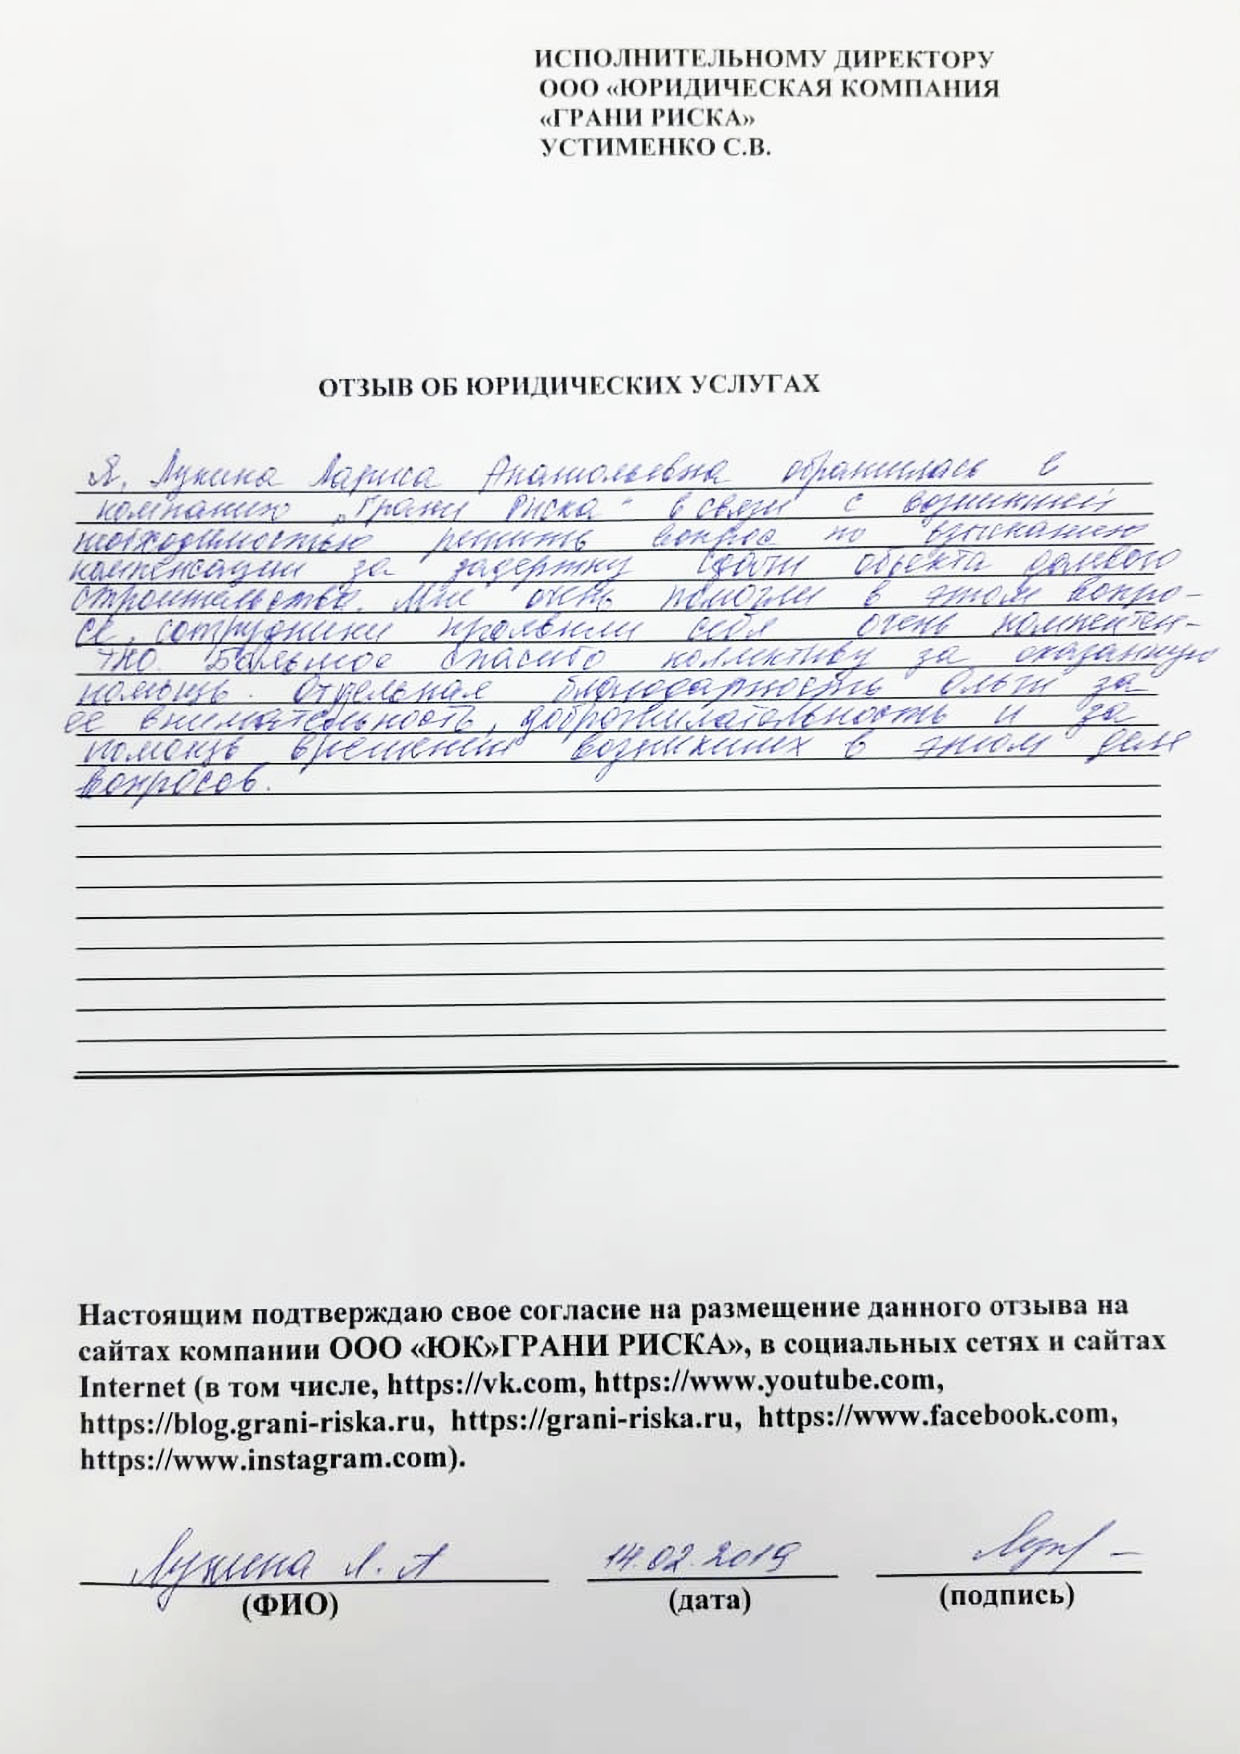 ИСПОЛНИТЕЛЬНОМУ ДИРЕКТОРУ
ООО «ЮРИДИЧЕСКАЯ КОМПАНИЯ
«ГРАНИ РИСКА»
УСТИМЕНКО С.В.
ОТЗЫВ ОБ ЮРИДИЧЕСКИХ УСЛУГАХ
Я, Лукина Лариса Анатольевна обратилась в
компанию „Грани Риска“ в связи с возникшей
необходимостью решить вопрос по взысканию
компенсации за задержку сдачи объекта долевого
строительства. Мне очень помогли в этом вопро-
се, сотрудники проявили себя очень компетен-
тно. Большое спасибо коллективу за оказанную
помощь. Отдельная благодарность Ольге за
ее внимательность, доброжелательность и за
помощь в решении возникших в этом деле
вопросов.
Настоящим подтверждаю свое согласие на размещение данного отзыва на
сайтах компании ООО «ЮК»ГРАНИ РИСКА», в социальных сетях и сайтах
Internet (в том числе, https://vk.com, https://www.youtube.com,
https://blog.grani-riska.ru, https://grani-riska.ru, https://www.facebook.com,
https://www.instagram.com).
Лукина Л. А 14.02.2019
(ФИО) (дата) (подпись)